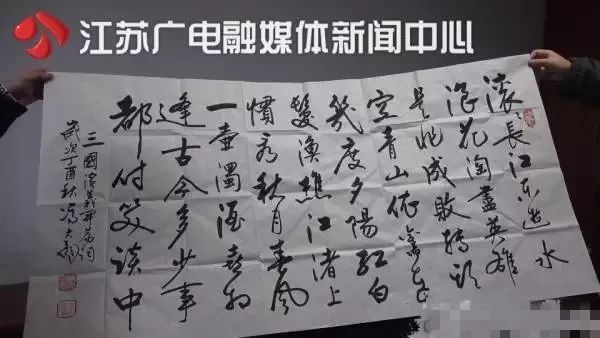 江苏广电融媒体新闻中心
滚滚長江东逝水
浪花淘盡英雄
是非成敗轉头
空青山依舊在
幾度夕陽紅白
髮漁樵江渚上
慣看秋月春風
一壺濁酒喜相
逢古今多少事
都付笑談中
三國演義开篇词
歲次丁酉秋